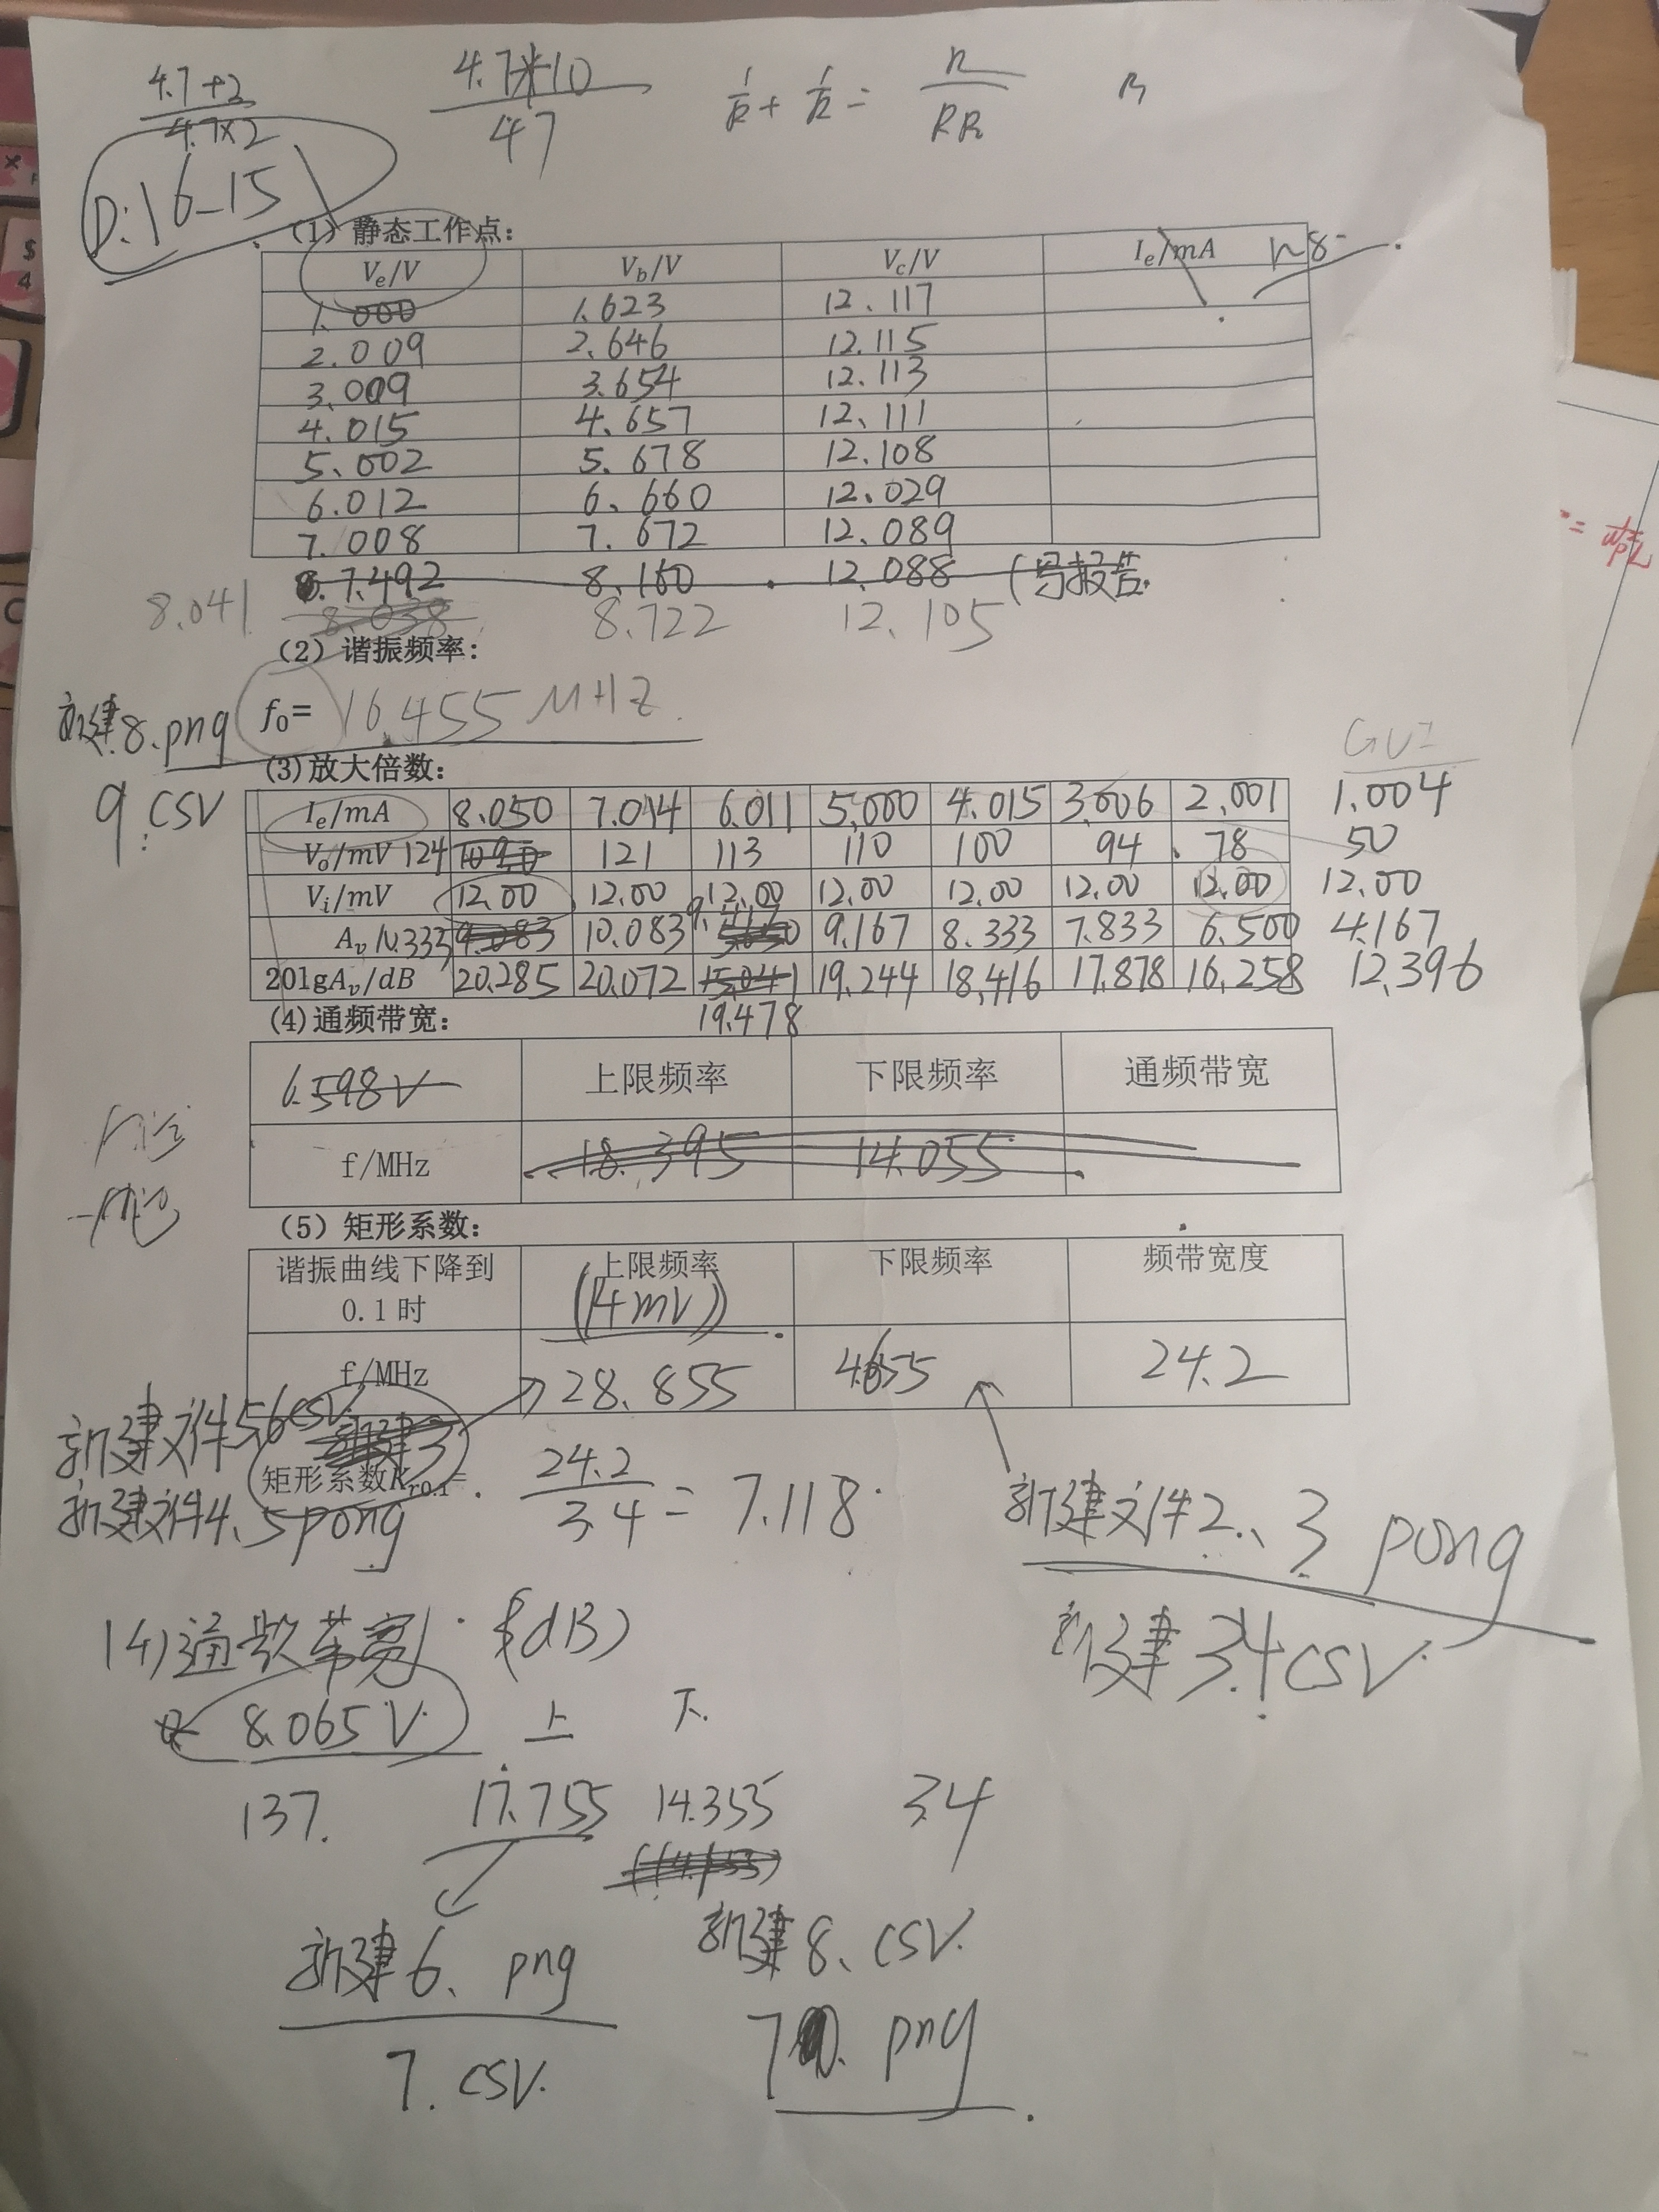 4.7+2 4.7*10 n
4.7×2 47 1/R + 1/R = RR
D:16-15
(1) 静态工作点:
Ve/V Vb/V Vc/V Ie/mA
1.000 1.623 12.117
2.009 2.646 12.115
3.009 3.654 12.113
4.015 4.657 12.111
5.002 5.678 12.108
6.012 6.660 12.029
7.008 7.672 12.089
7.492 8.160 12.088 (写报告
8.041 8.038 8.722 12.105
(2) 谐振频率:
新建8.png f0= 16.455 MHZ
9.csv
(3)放大倍数:
Ie/mA 8.050 7.014 6.011 5.000 4.015 3.006 2.001 1.004
V0/mV 124 109.0 121 113 110 100 94 78 50
Vi/mV 12.00 12.00 12.00 12.00 12.00 12.00 12.00 12.00
Av 10.333 9.083 10.083 9.417 9.167 8.333 7.833 6.500 4.167
20lgAv/dB 20.285 20.072 15.041 19.244 18.416 17.878 16.258 12.396
19.478
(4)通频带宽:
6.598V 上限频率 下限频率 通频带宽
f/MHz 18.395 14.055
(5) 矩形系数:
谐振曲线下降到 上限频率 下限频率 频带宽度
0.1时 (14mV)
f/MHz 28.855 4.655 24.2
新建文件5.6csv 新建3
矩形系数Kr0.1= 24.2/3.4 = 7.118
新建文件4、5pong
新建文件2、3 pong
新建3.4csv
(4)通频带宽 (dB)
8.065V 上 下
137. 17.755 14.355 3.4
新建6、png 新建8、csv.
7.csv. 7 png